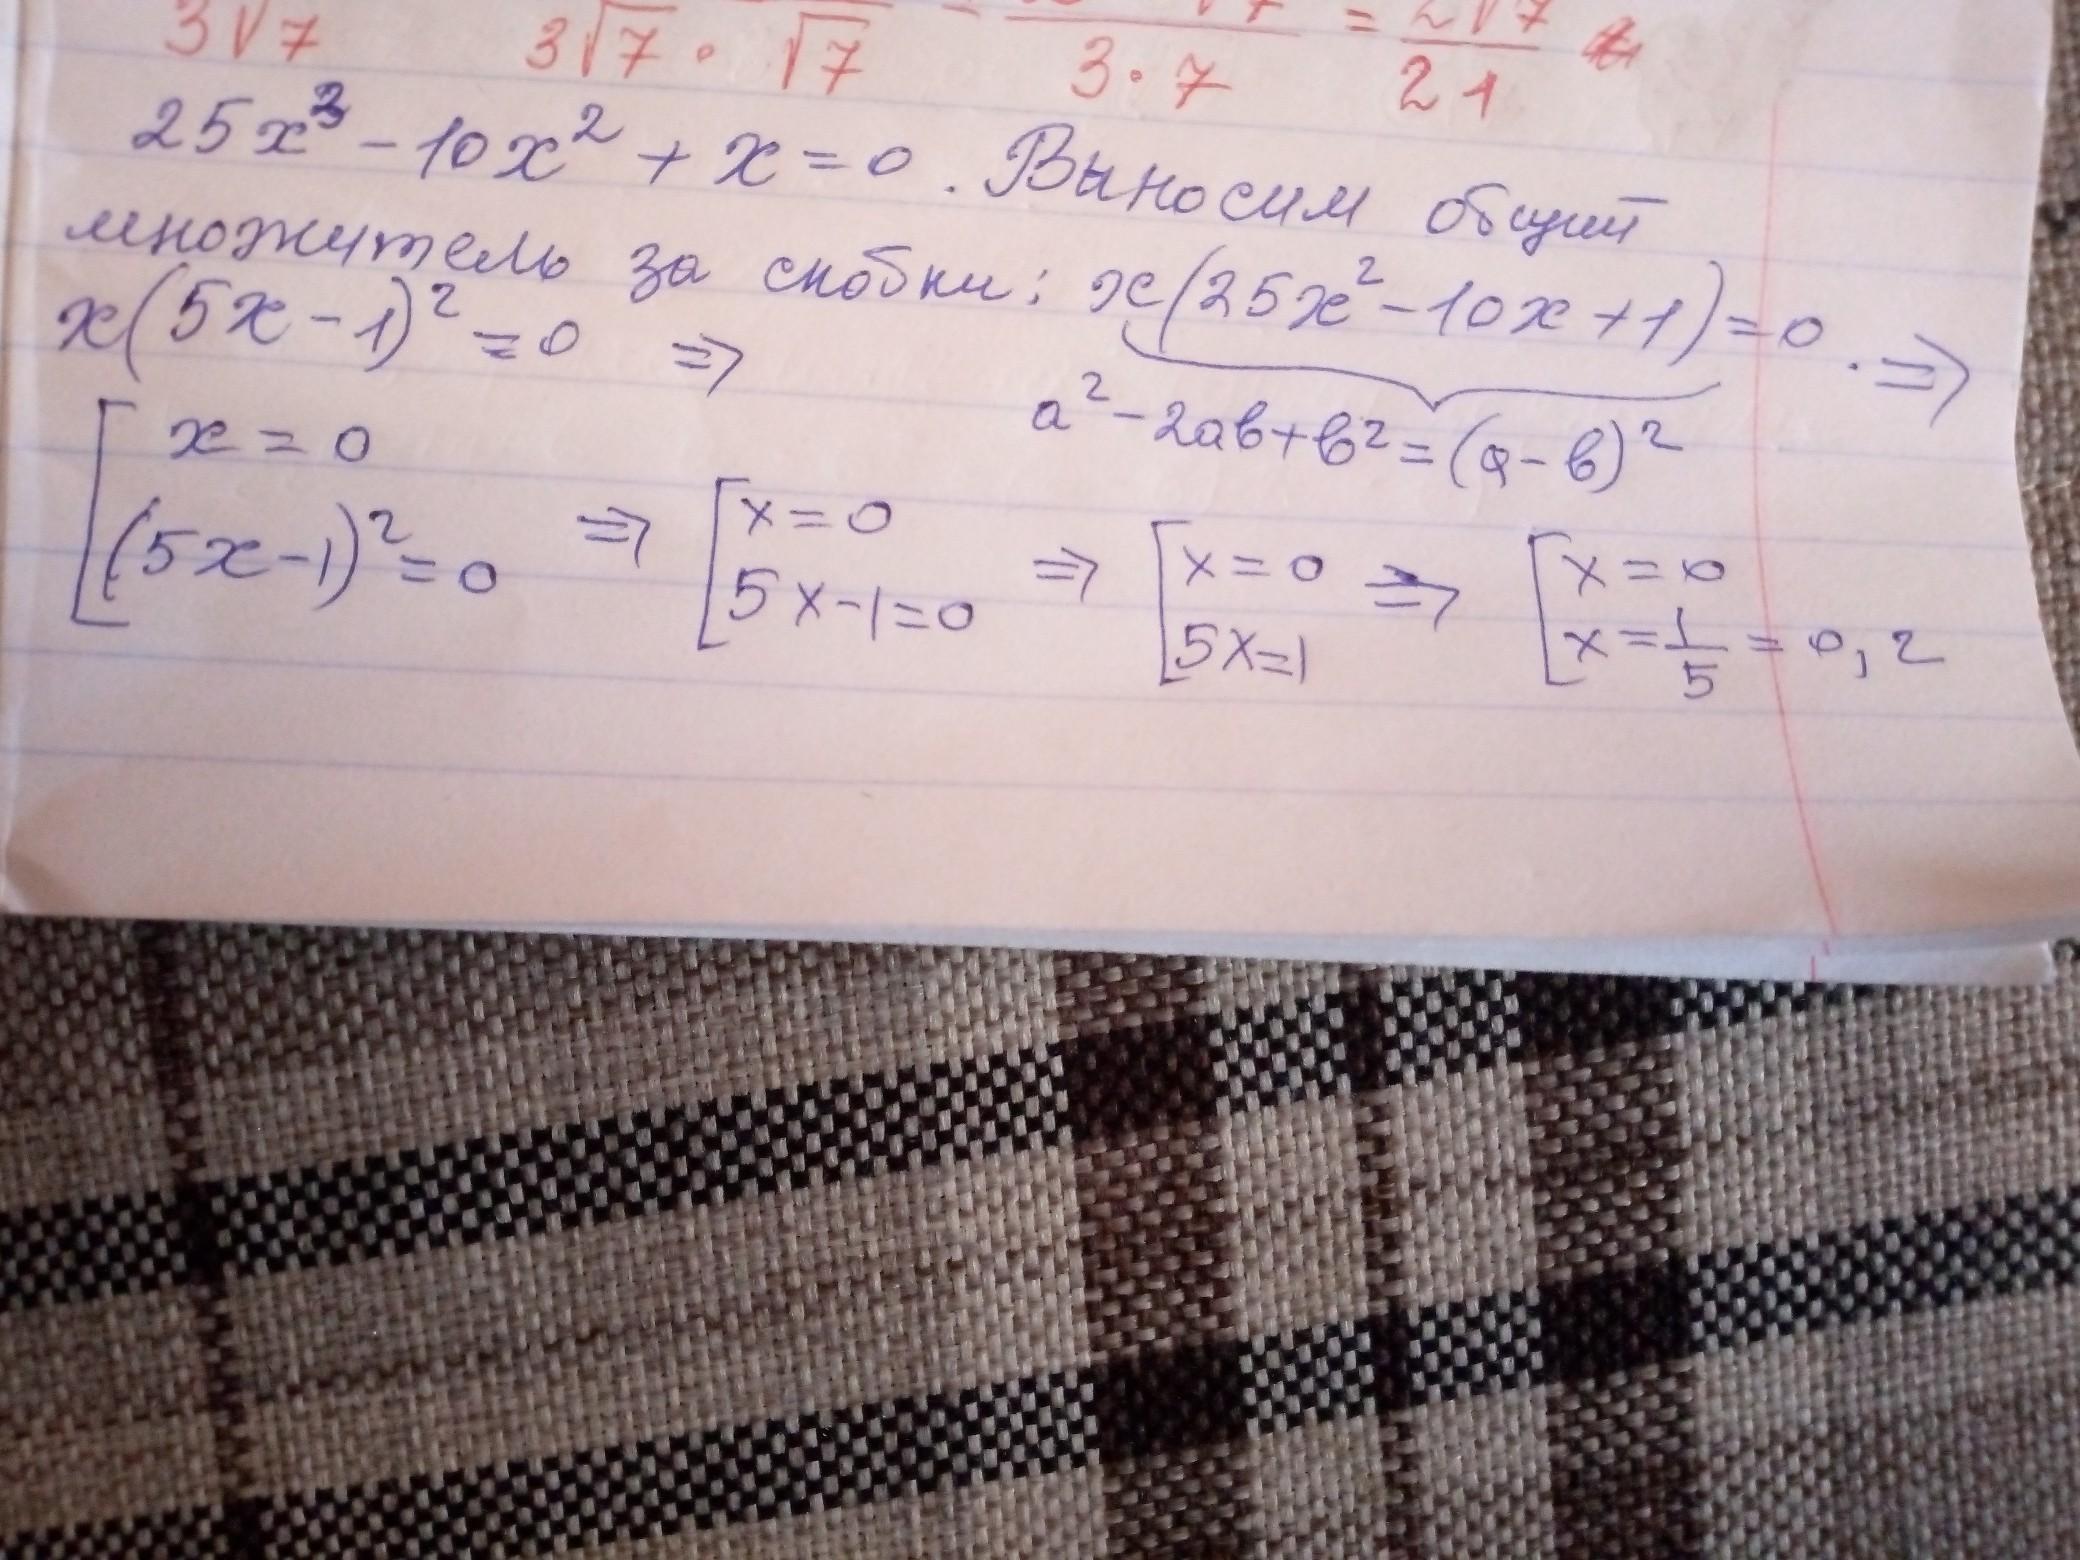 3√7 3√7 · √7 = 3 · 7 = 2√7 / 21
25x³ - 10x² + x = 0. Выносим общий
множитель за скобки: x(25x² - 10x + 1) = 0. ⇒
x(5x - 1)² = 0 ⇒
a² - 2ab + b² = (a - b)²
[ x = 0 ; (5x - 1)² = 0 ⇒ [ x = 0 ; 5x - 1 = 0 ⇒ [ x = 0 ; 5x = 1 ⇒ [ x = 0 ; x = 1/5 = 0,2